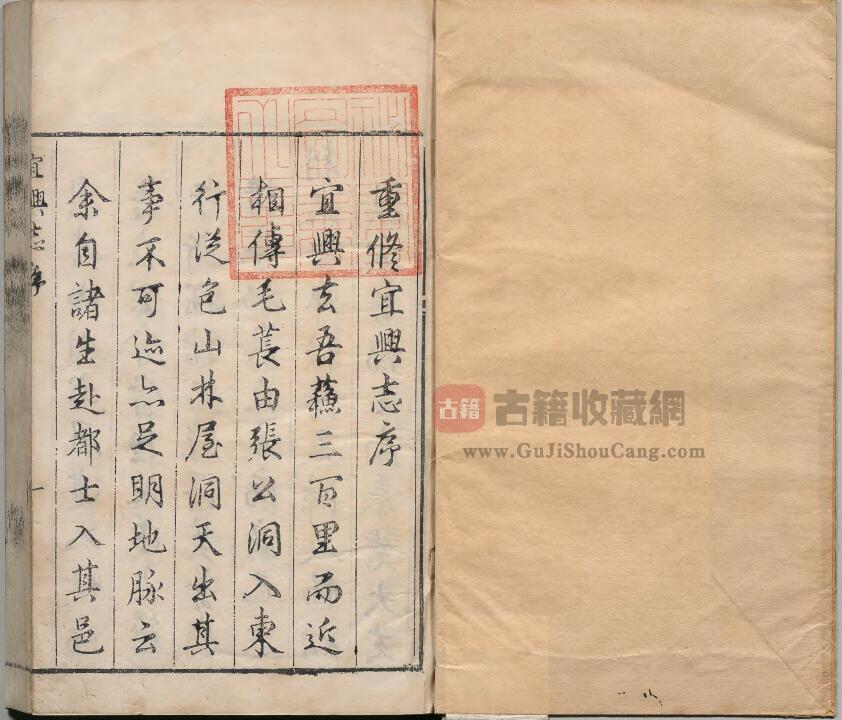 重修宜興志序
宜興去吾蘇三百里而近
相傳毛萇由張公洞入東
行從包山林屋洞天出其
事不可迹亦足明地脉云
余自諸生赴都士入其邑
宜興志序
一
古籍
古籍收藏網
www.GuJiShouCang.com